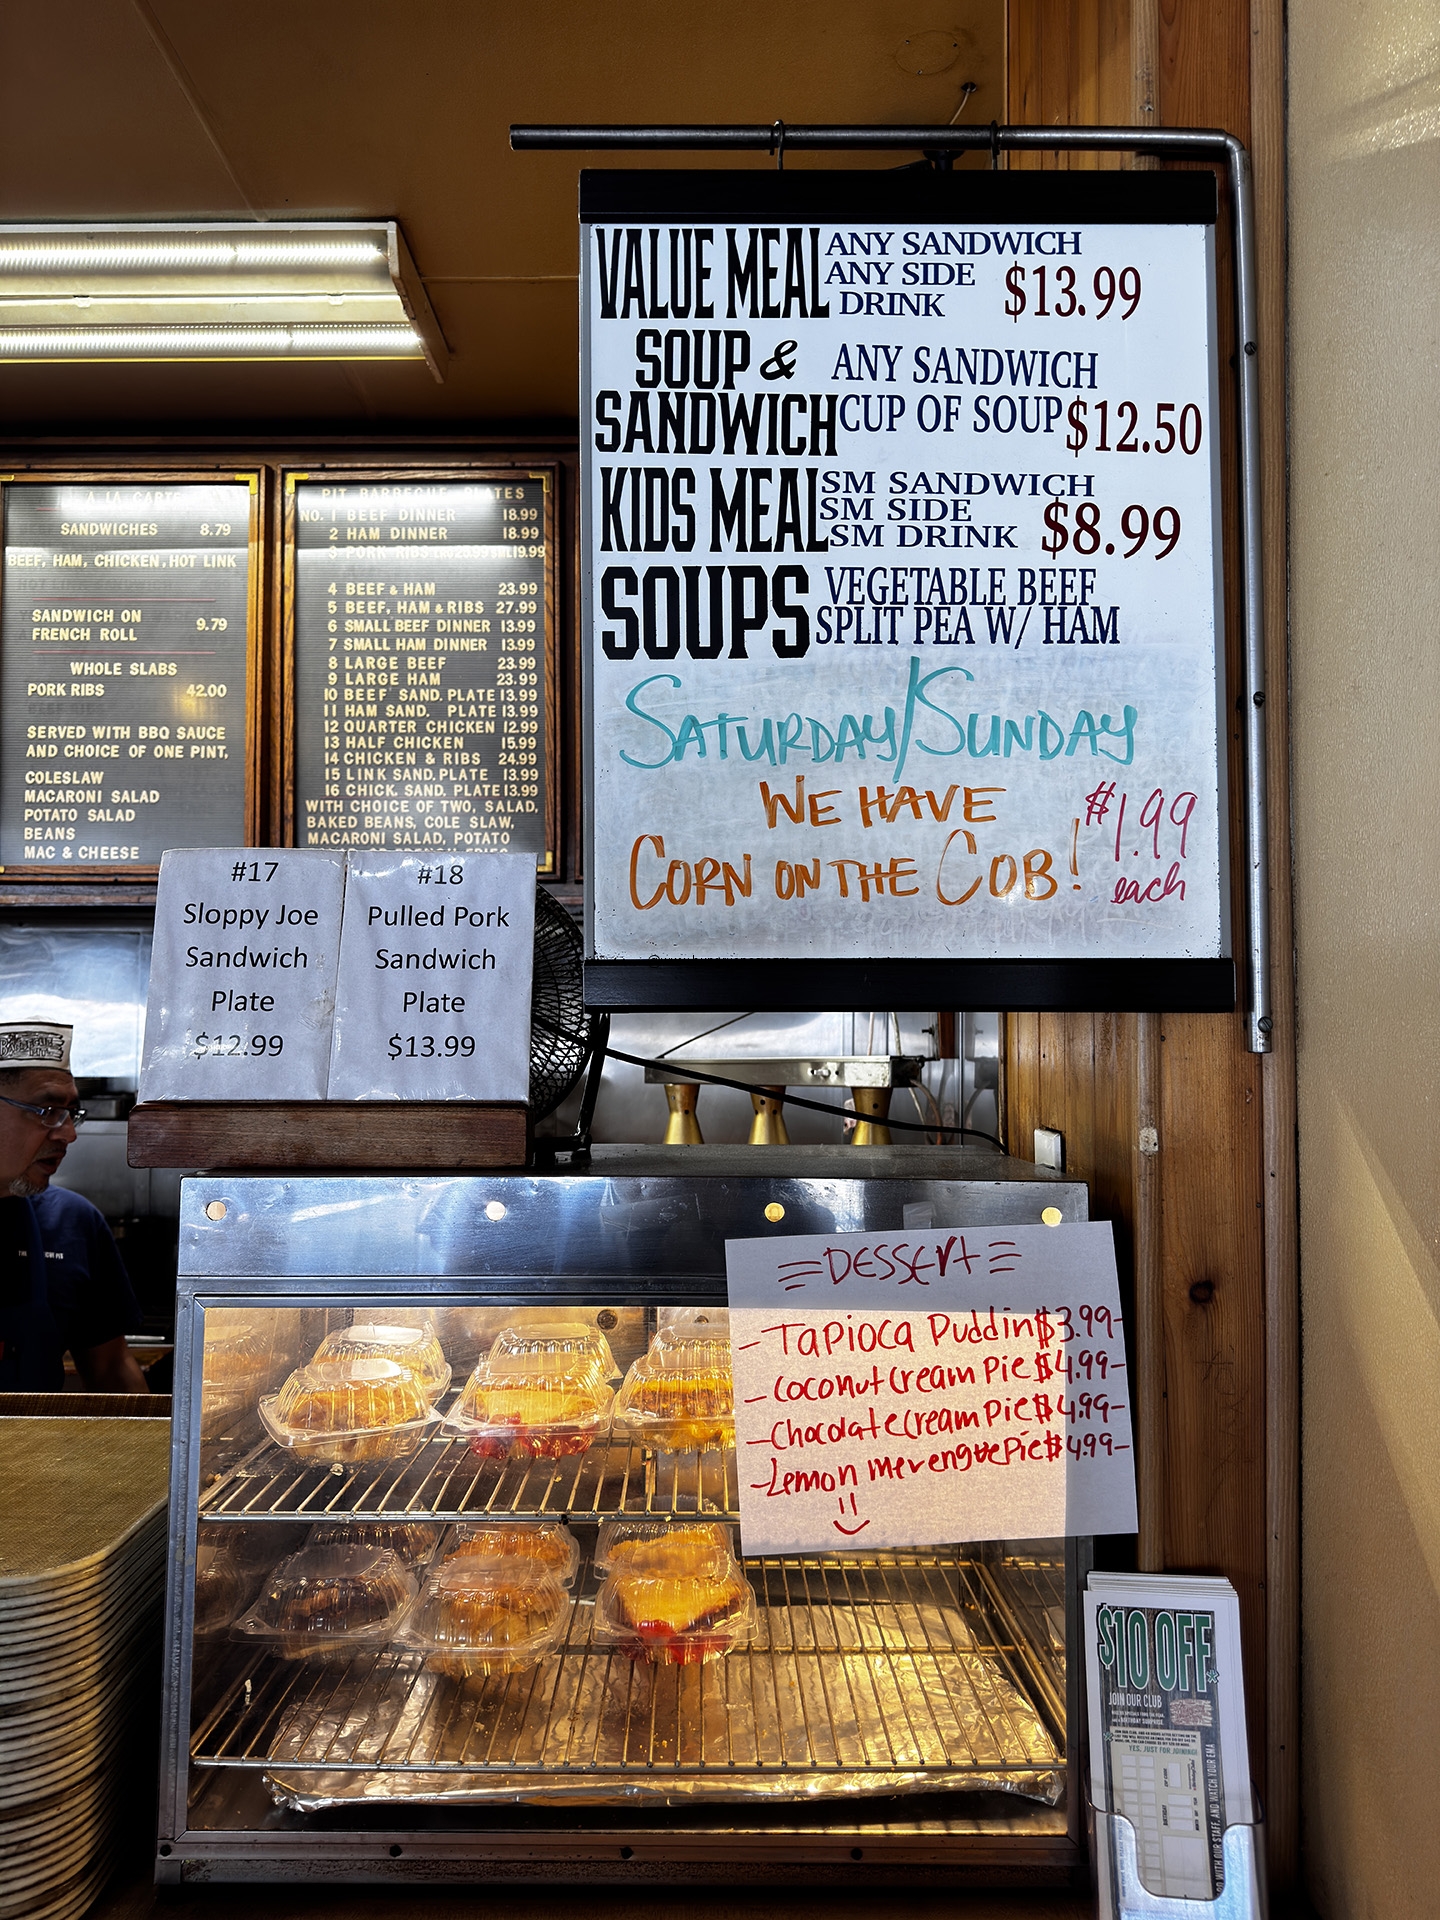 VALUE MEAL ANY SANDWICH
ANY SIDE
DRINK $13.99
SOUP & SANDWICH ANY SANDWICH
CUP OF SOUP $12.50
KIDS MEAL SM SANDWICH
SM SIDE
SM DRINK $8.99
SOUPS VEGETABLE BEEF
SPLIT PEA W/ HAM
SATURDAY/SUNDAY
WE HAVE
CORN ON THE COB!
$1.99
each
A LA CARTE
SANDWICHES 8.79
BEEF, HAM, CHICKEN, HOT LINK
SANDWICH ON
FRENCH ROLL 9.79
WHOLE SLABS
PORK RIBS 42.00
SERVED WITH BBQ SAUCE
AND CHOICE OF ONE PINT.
COLESLAW
MACARONI SALAD
POTATO SALAD
BEANS
MAC & CHEESE
PIT BARBECUE PLATES
NO. 1 BEEF DINNER 18.99
2 HAM DINNER 18.99
3 PORK RIBS 19.99
4 BEEF & HAM 23.99
5 BEEF, HAM & RIBS 27.99
6 SMALL BEEF DINNER 13.99
7 SMALL HAM DINNER 13.99
8 LARGE BEEF 23.99
9 LARGE HAM 23.99
10 BEEF SAND. PLATE 13.99
11 HAM SAND. PLATE 13.99
12 QUARTER CHICKEN 12.99
13 HALF CHICKEN 15.99
14 CHICKEN & RIBS 24.99
15 LINK SAND. PLATE 13.99
16 CHICK. SAND. PLATE 13.99
WITH CHOICE OF TWO, SALAD,
BAKED BEANS, COLE SLAW,
MACARONI SALAD, POTATO
#17
Sloppy Joe
Sandwich
Plate
$12.99
#18
Pulled Pork
Sandwich
Plate
$13.99
DESSErt
- Tapioca Puddin $3.99-
- Coconut Cream Pie $4.99-
- Chocolate Cream Pie $4.99-
- Lemon merengue Pie $4.99-
$10 OFF*
JOIN OUR CLUB
YES, JUST FOR JOINING!